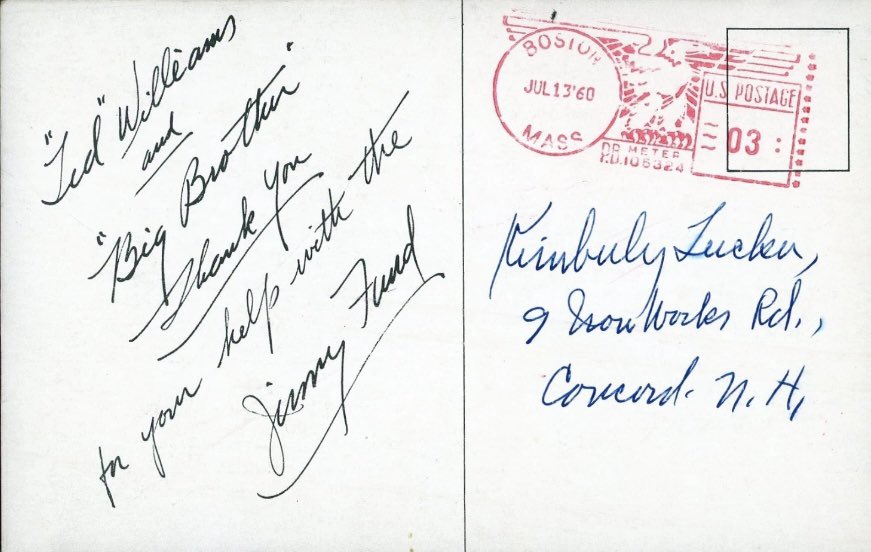 "Ted" Williams
and
"Big Brother"
Thank You
for your help with the
Jimmy Fund
BOSTON
JUL 13 '60
MASS
U.S. POSTAGE
03
PB METER
P.D.106324
Kimberly Tucker,
9 Iron Works Rd.,
Concord. N. H,